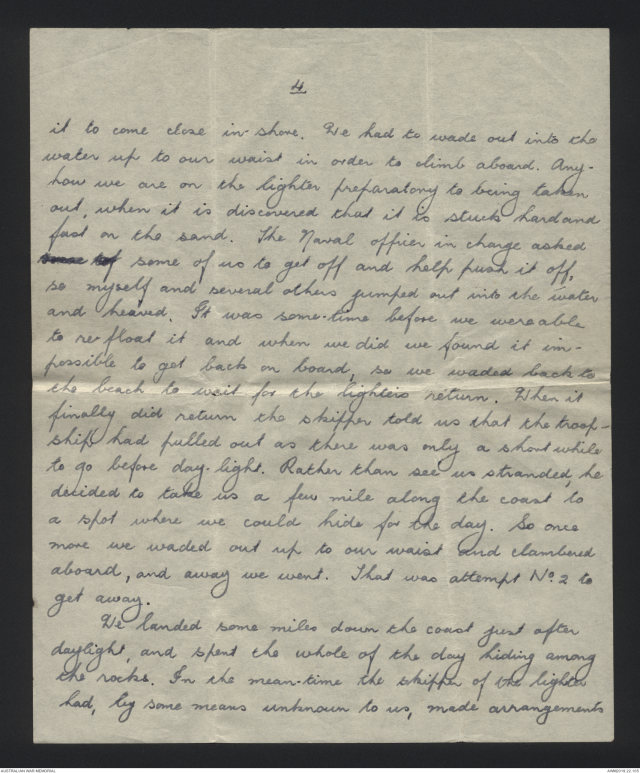 4
it to come close in-shore. We had to wade out into the
water up to our waist in order to climb aboard. Any-
how we are on the lighter preparatory to being taken
out, when it is discovered that it is stuck hard and
fast on the sand. The Naval officer in charge asked
some of us to get off and help push it off,
so myself and several others jumped out into the water
and heaved. It was some-time before we were able
to re-float it and when we did we found it im-
possible to get back on board, so we waded back to
the beach to wait for the lighters return. When it
finally did return the skipper told us that the troop-
ship had pulled out as there was only a short while
to go before day-light. Rather than see us stranded, he
decided to take us a few mile along the coast to
a spot where we could hide for the day. So once
more we waded out up to our waist and clambered
aboard, and away we went. That was attempt No. 2 to
get away.
We landed some miles down the coast just after
daylight, and spent the whole of the day hiding among
the rocks. In the mean-time the skipper of the lighter
had, by some means unknown to us, made arrangements
AUSTRALIAN WAR MEMORIAL